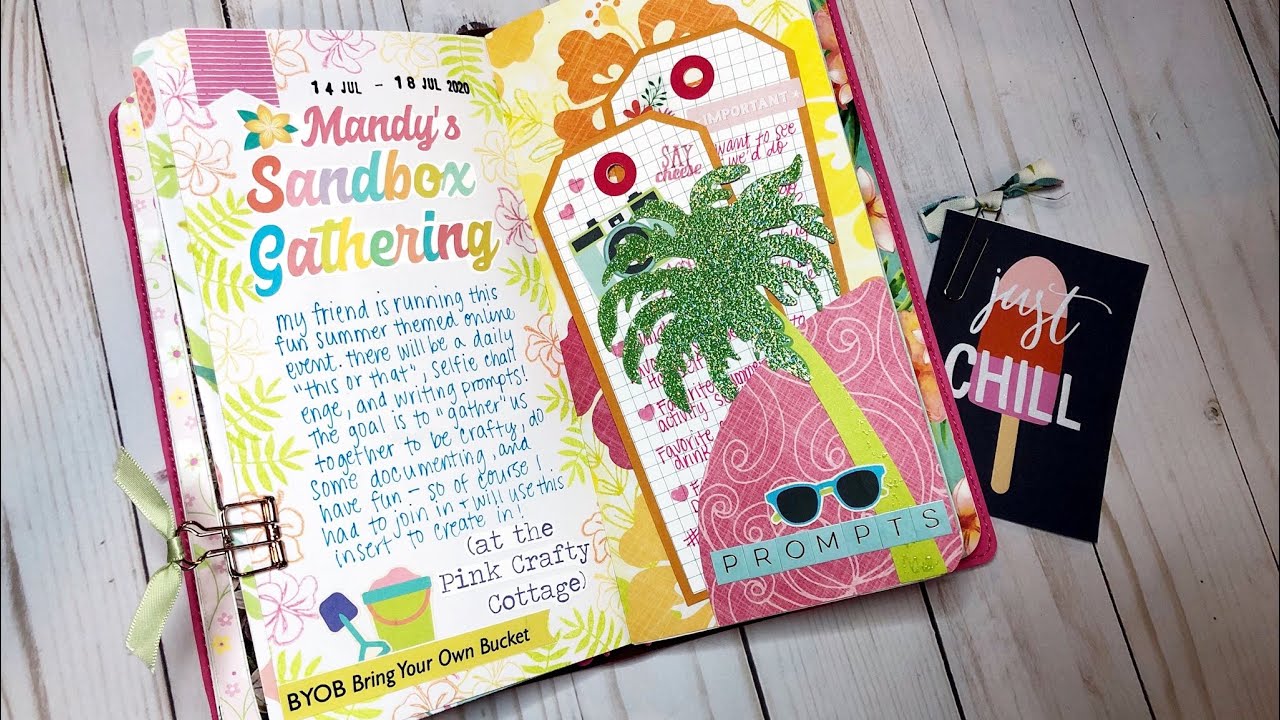 14 JUL - 18 JUL 2020
Mandy's
Sandbox
Gathering
my friend is running this
fun summer themed online
event. there will be a daily
"this or that", selfie chall
enge, and writing prompts!
The goal is to "gather" us
together to be crafty, do
some documenting, and
have fun - so of course I
had to join in + will use this
insert to create in!
(at the
Pink Crafty
Cottage)
BYOB Bring Your Own Bucket
IMPORTANT
want to see
we'd do
SAY
cheese
Favorite
activity
Favorite
drink
PROMPTS
just
CHILL